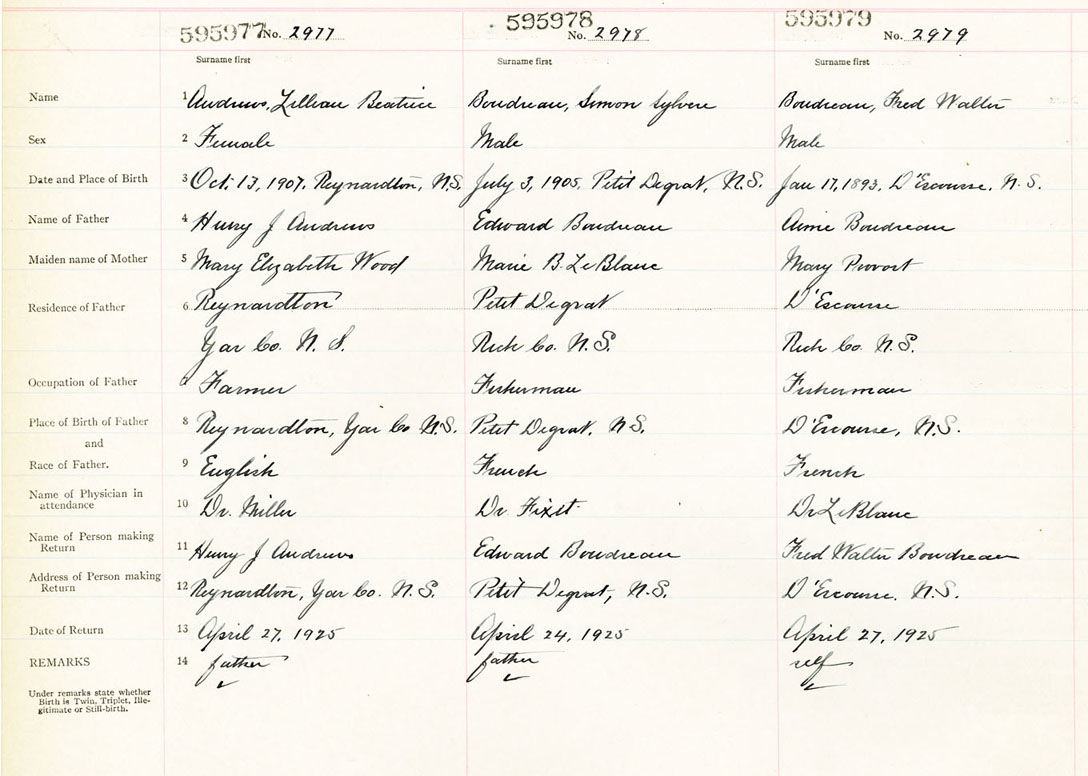 595977 No. 2977 595978 No. 2978 595979 No. 2979
Surname first Surname first Surname first
Name 1 Andrews, Lillian Beatrice Boudreau, Simon Sylvere Boudreau, Fred Walter
Sex 2 Female Male Male
Date and Place of Birth 3 Oct. 13, 1907. Reynardton, N.S. July 3, 1905. Petit Degrat, N.S. Jan 17, 1893. D'Escousse, N.S.
Name of Father 4 Henry J Andrews Edward Boudreau Aimie Boudreau
Maiden name of Mother 5 Mary Elizabeth Wood Marie B. LeBlanc Mary Provost
Residence of Father 6 Reynardton Petit Degrat D'Escousse
Yar Co. N.S. Rich Co. N.S. Rich Co. N.S.
Occupation of Father 7 Farmer Fisherman Fisherman
Place of Birth of Father 8 Reynardton, Yar Co N.S. Petit Degrat, N.S. D'Escousse, N.S.
and
Race of Father. 9 English French French
Name of Physician in
attendance 10 Dr. Miller Dr. Fixit Dr LeBlanc
Name of Person making
Return 11 Henry J Andrews Edward Boudreau Fred Walter Boudreau
Address of Person making
Return 12 Reynardton, Yar Co. N.S. Petit Degrat, N.S. D'Escousse, N.S.
Date of Return 13 April 27, 1925 April 24, 1925 April 27, 1925
REMARKS 14 father father self
Under remarks state whether
Birth is Twin, Triplet, Ille-
gitimate or Still-birth.